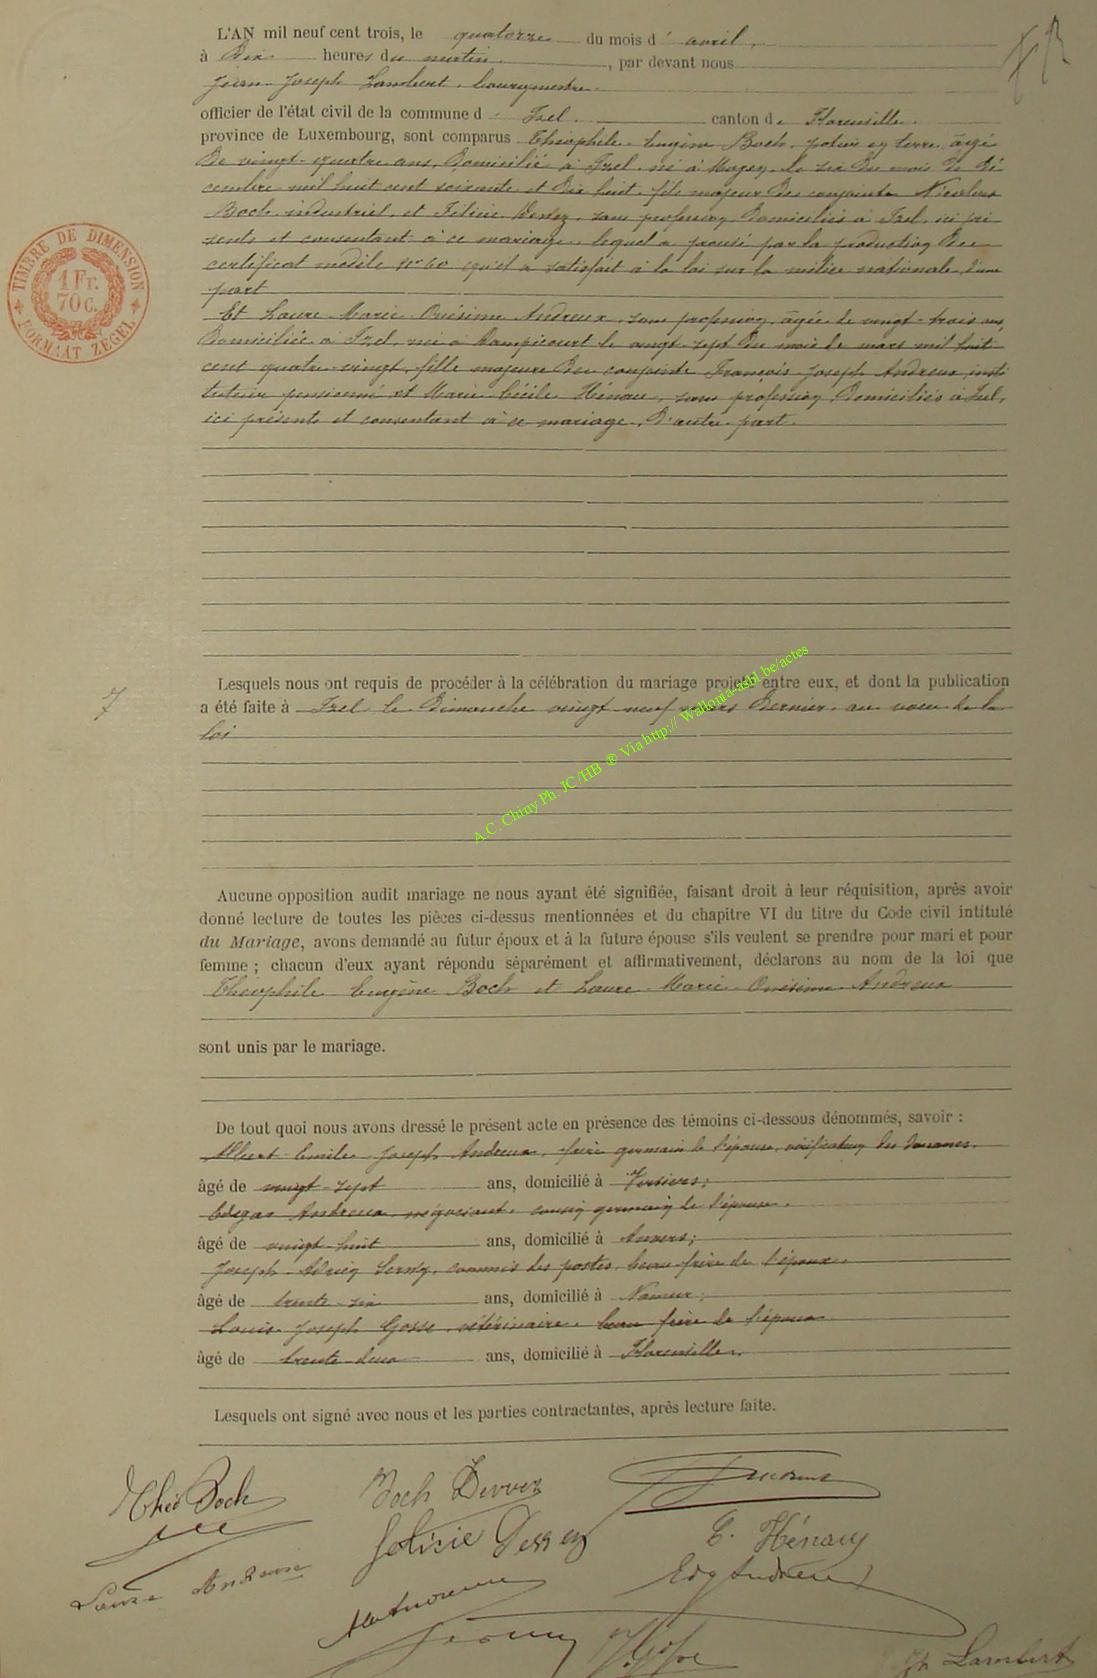 L'AN mil neuf cent trois, le quatorze du mois d' avril,
à Dix heures du matin, par devant nous
Jean Joseph Lambert, bourgmestre
officier de l'état civil de la commune d' Izel canton de Florenville
province de Luxembourg, sont comparus Théophile Eugène Boch, potier en terre, âgé
de vingt-quatre ans, domicilié à Izel, né à Moyen, le six du mois de dé-
cembre mil huit cent soixante et dix huit, fils majeur des conjoints Nicolas
Boch, industriel, et Félicie Dessez, sans profession, domiciliés à Izel, ici pré-
sents et consentant à ce mariage, lequel a prouvé par la production du
certificat modèle n° 60 qu'il a satisfait à la loi sur la milice nationale, d'une
part
Et Laure Marie Onésime Andreux, sans profession, âgée de vingt-trois ans,
domiciliée à Izel, née à Rampicourt le vingt sept du mois de mars mil huit
cent quatre-vingt, fille majeure des conjoints François Joseph Andreux, insti-
tuteur pensionné et Marie Cécile Hénaux, sans profession, domiciliés à Izel,
ici présents et consentant à ce mariage, d'autre part.
TIMBRE DE DIMENSION
1 Fr. 70 C.
FORMAAT ZEGEL
Lesquels nous ont requis de procéder à la célébration du mariage projeté entre eux, et dont la publication
7
a été faite à Izel le dimanche vingt-neuf mars dernier, au vœu de la
loi
A.C. Chiny Ph. JC/HB ® Via http:// Wallonia-asbl.be/actes
Aucune opposition audit mariage ne nous ayant été signifiée, faisant droit à leur réquisition, après avoir
donné lecture de toutes les pièces ci-dessus mentionnées et du chapitre VI du titre du Code civil intitulé
du Mariage, avons demandé au futur époux et à la future épouse s'ils veulent se prendre pour mari et pour
femme ; chacun d'eux ayant répondu séparément et affirmativement, déclarons au nom de la loi que
Théophile Eugène Boch et Laure Marie Onésime Andreux
sont unis par le mariage.
De tout quoi nous avons dressé le présent acte en présence des témoins ci-dessous dénommés, savoir :
Albert Emile Joseph Andreux, frère germain de l'épouse, vérificateur des douanes,
âgé de vingt-sept ans, domicilié à Verviers;
Edgar Andreux négociant, cousin germain de l'épouse,
âgé de vingt-huit ans, domicilié à Anvers;
Joseph Adrien Serny, commis des postes, beau frère de l'époux,
âgé de trente-six ans, domicilié à Namur;
Louis Joseph Gosse, vétérinaire, beau frère de l'époux
âgé de trente-deux ans, domicilié à Florenville.
Lesquels ont signé avec nous et les parties contractantes, après lecture faite.
Théo Boch
Boch Dessez
Félicie Dessez
C. Hénaux
Laure Andreux
Edg Andreux
Jh Lambert